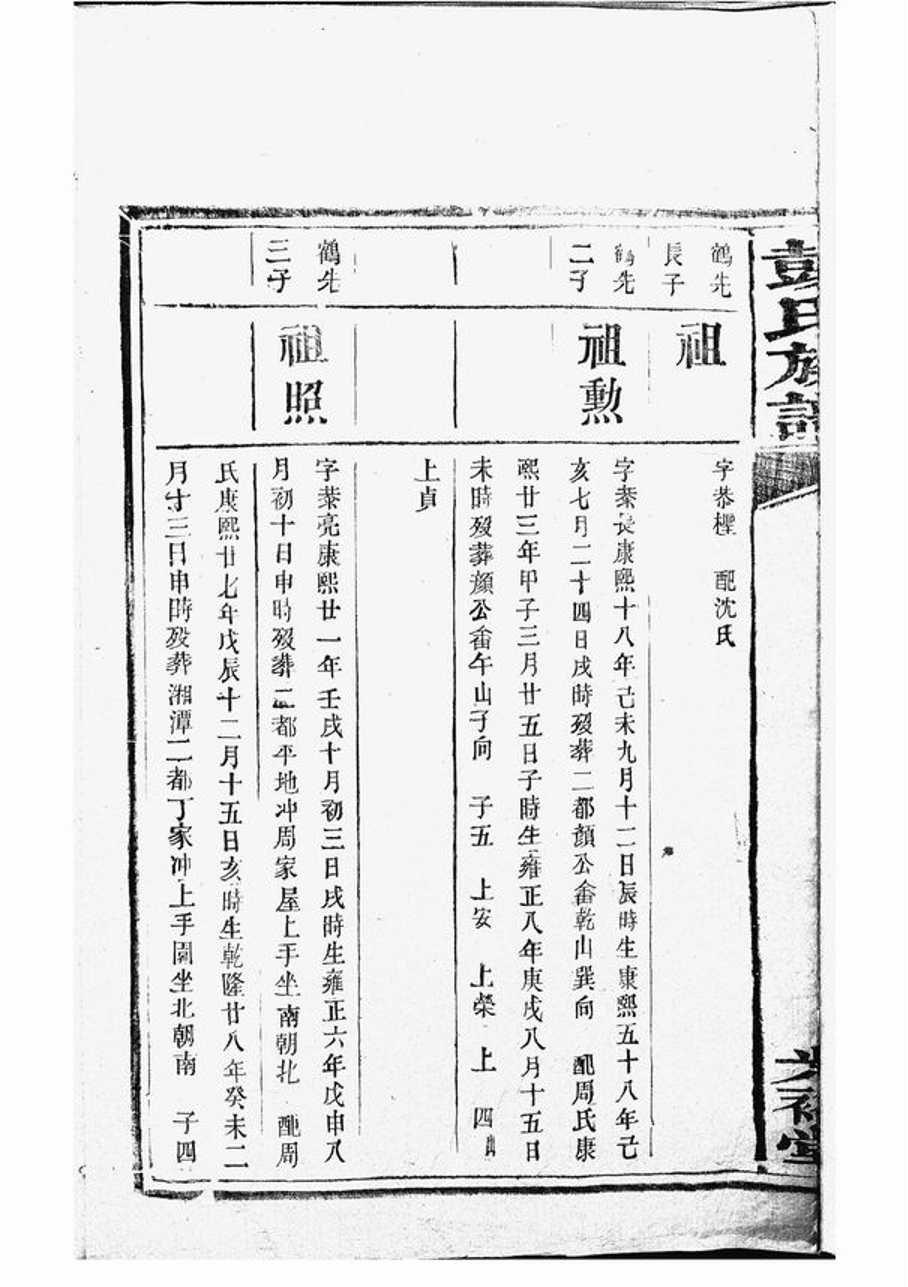 彭氏族譜
光裕堂
鶴先
長子
祖
字恭樫 配沈氏
鶴先
二子
祖勲
字棻長康熙十八年己未九月十二日辰時生康熙五十八年己
亥七月二十四日戌時歿葬二都顏公畬乾山巽向 配周氏康
熙廿三年甲子三月廿五日子時生雍正八年庚戌八月十五日
未時歿葬顏公畬午山子向 子五 上安 上榮 上 四
上貞
鶴先
三子
祖照
字棻亮康熙廿一年壬戌十月初三日戌時生雍正六年戊申八
月初十日申時歿葬二都平地冲周家屋上手坐南朝北 配周
氏康熙廿七年戊辰十二月十五日亥時生乾隆廿八年癸未二
月廿三日申時歿葬湘潭二都丁家冲上手園坐北朝南 子四